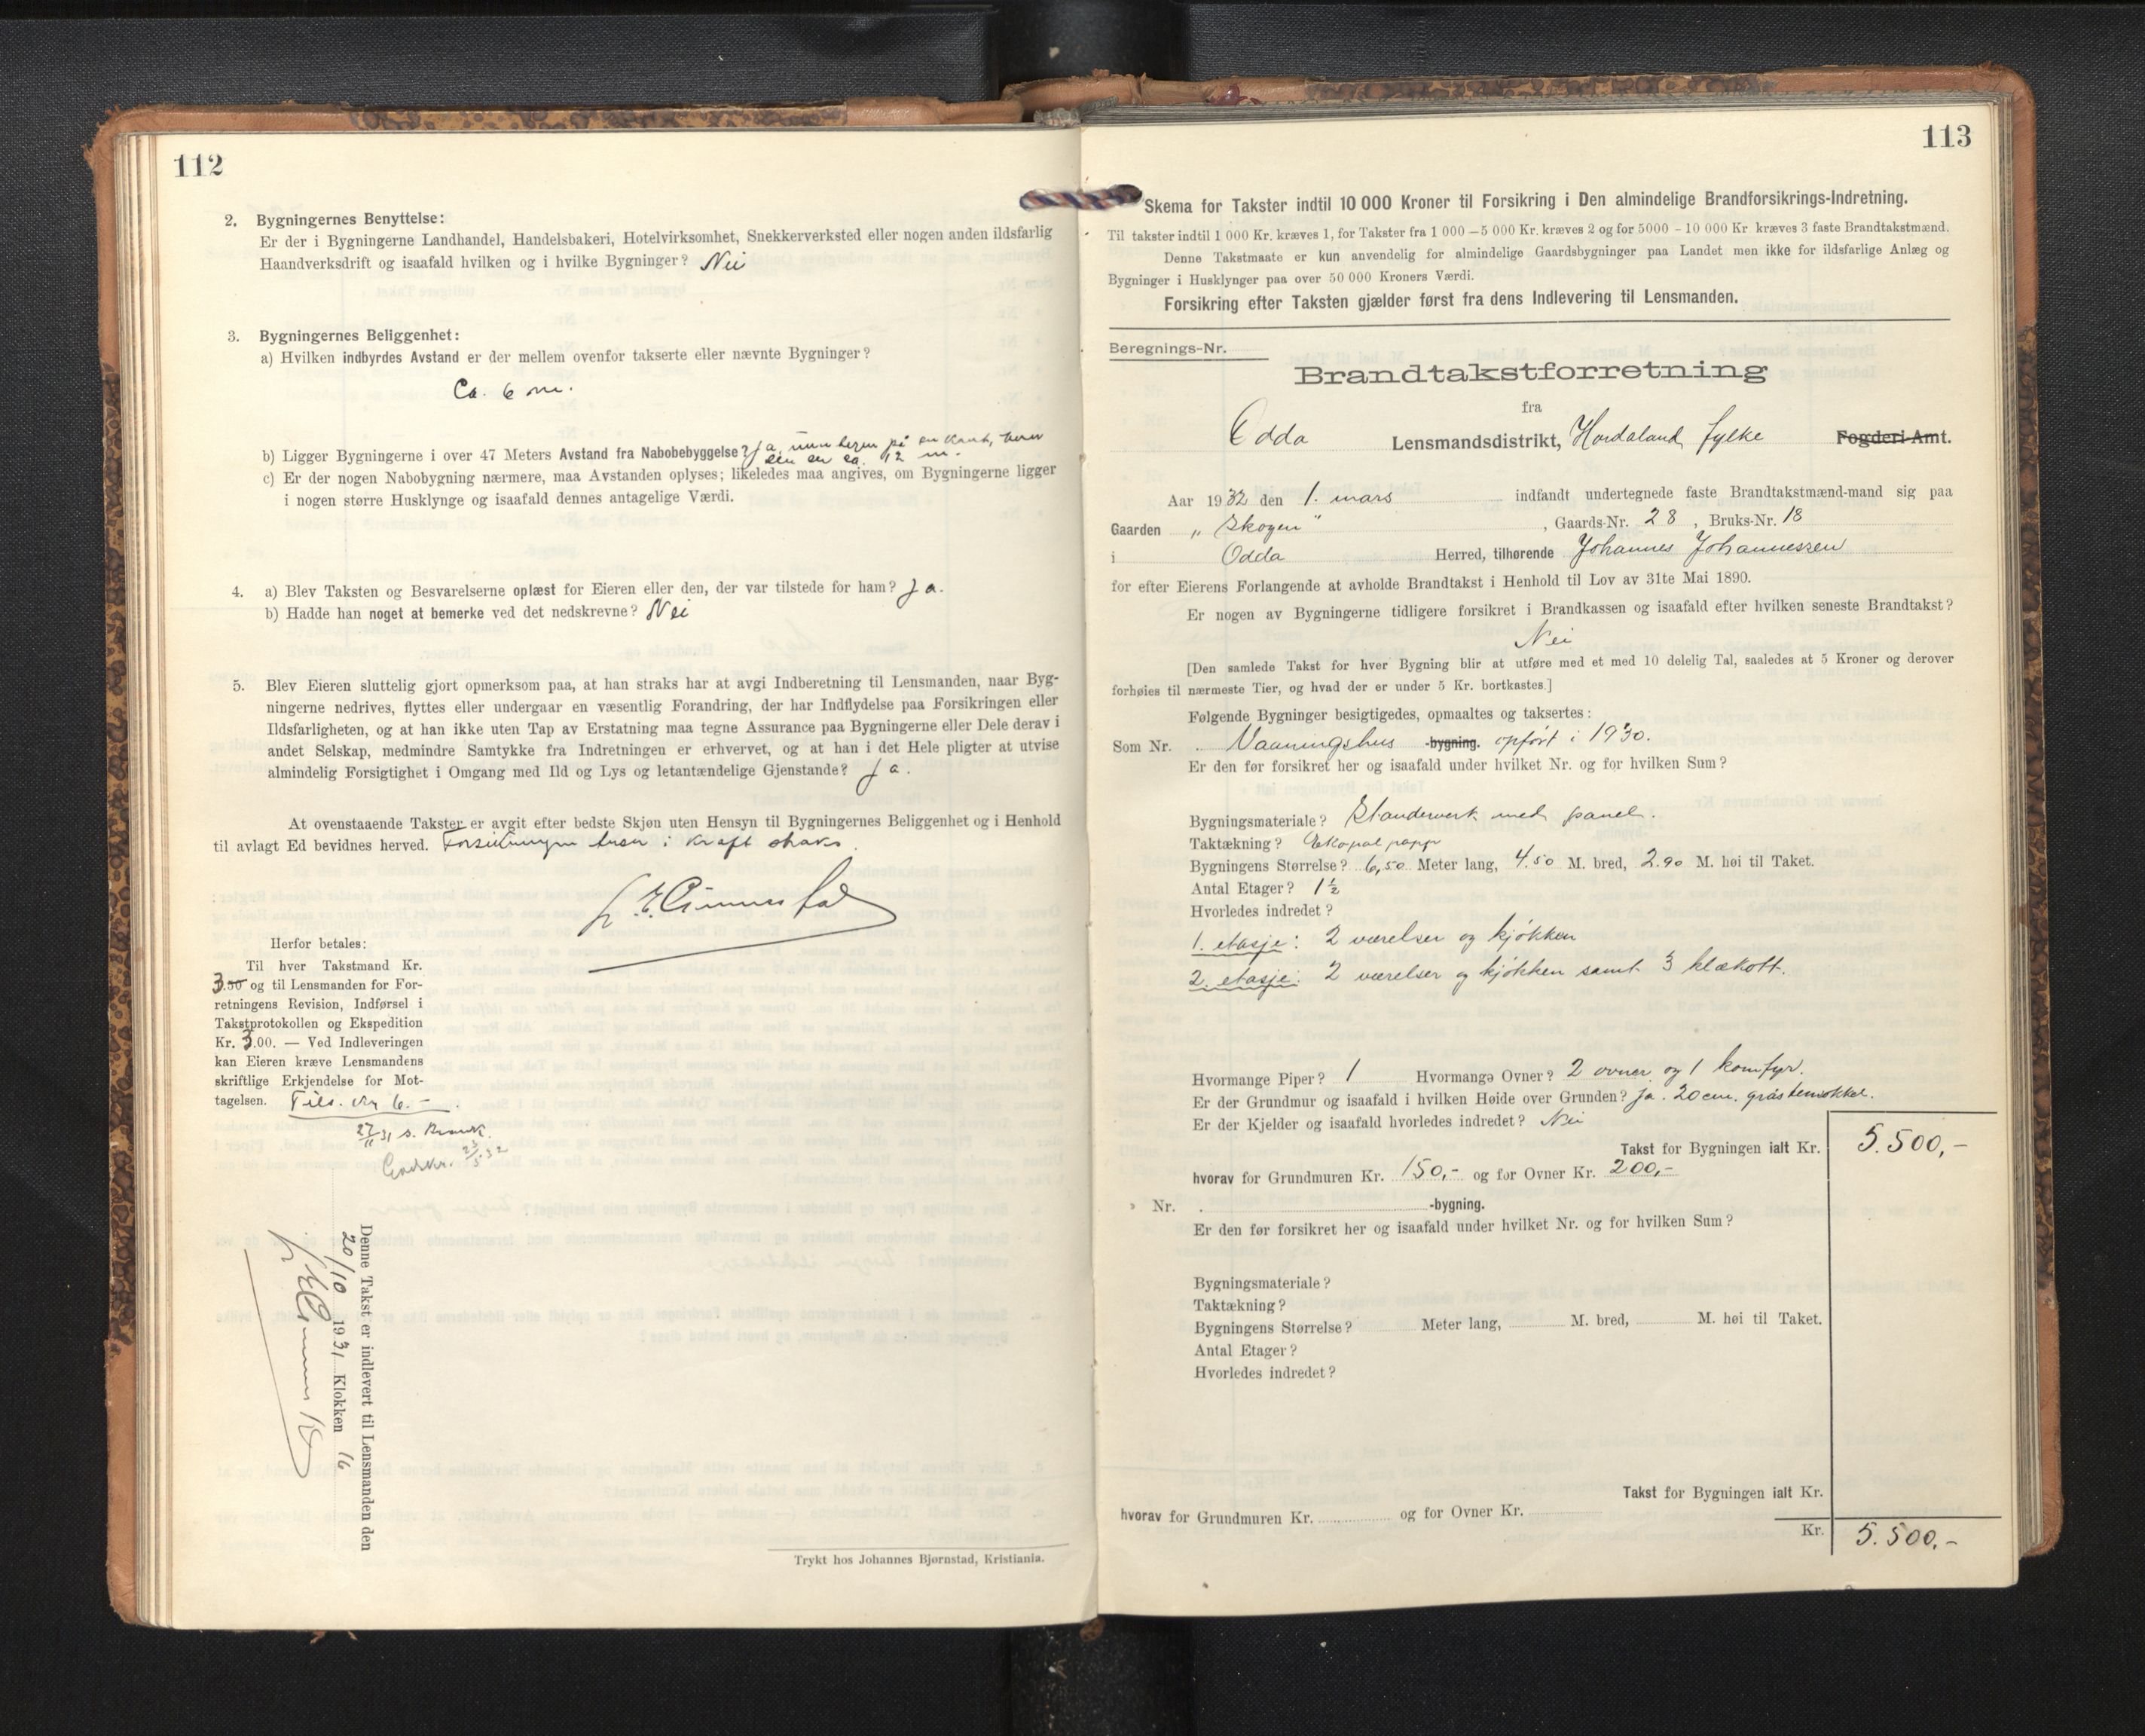 112
2. Bygningernes Benyttelse:
Er der i Bygningerne Landhandel, Handelsbakeri, Hotelvirksomhet, Snekkerverksted eller nogen anden ildsfarlig
Haandverksdrift og isaafald hvilken og i hvilke Bygninger? Nei
3. Bygningernes Beliggenhet:
a) Hvilken indbyrdes Avstand er der mellem ovenfor takserte eller nævnte Bygninger?
Ca. 6 m.
b) Ligger Bygningerne i over 47 Meters Avstand fra Nabobebyggelse? Ja, på en kant,
den er ca. 12 m.
c) Er der nogen Nabobygning nærmere, maa Avstanden oplyses; likeledes maa angives, om Bygningerne ligger
i nogen større Husklynge og isaafald dennes antagelige Værdi.
4. a) Blev Taksten og Besvarelserne oplæst for Eieren eller den, der var tilstede for ham? Ja.
b) Hadde han noget at bemerke ved det nedskrevne? Nei
5. Blev Eieren sluttelig gjort opmerksom paa, at han straks har at avgi Indberetning til Lensmanden, naar Byg-
ningerne nedrives, flyttes eller undergaar en væsentlig Forandring, der har Indflydelse paa Forsikringen eller
Ildsfarligheten, og at han ikke uten Tap av Erstatning maa tegne Assurance paa Bygningerne eller Dele derav i
andet Selskap, medmindre Samtykke fra Indretningen er erhvervet, og at han i det Hele pligter at utvise
almindelig Forsigtighet i Omgang med Ild og Lys og letantændelige Gjenstande? Ja.
At ovenstaaende Takster er avgit efter bedste Skjøn uten Hensyn til Bygningernes Beliggenhet og i Henhold
til avlagt Ed bevidnes herved. Forsikringen træer i kraft straks.
Herfor betales:
Til hver Takstmand Kr.
3.00 og til Lensmanden for For-
retningens Revision, Indførsel i
Takstprotokollen og Ekspedition
Kr. 3.00. — Ved Indleveringen
kan Eieren kræve Lensmandens
skriftlige Erkjendelse for Mot-
tagelsen. Tils. kr 6.-
27/11 31 s.
Godkr. 23/5-32
Denne Takst er indlevert til Lensmanden den
20/10 1931 Klokken 16
Trykt hos Johannes Bjørnstad, Kristiania.
113
Skema for Takster indtil 10 000 Kroner til Forsikring i Den almindelige Brandforsikrings-Indretning.
Til takster indtil 1 000 Kr. kræves 1, for Takster fra 1 000 — 5 000 Kr. kræves 2 og for 5000 - 10 000 Kr kræves 3 faste Brandtakstmænd.
Denne Takstmaate er kun anvendelig for almindelige Gaardsbygninger paa Landet men ikke for ildsfarlige Anlæg og
Bygninger i Husklynger paa over 50 000 Kroners Værdi.
Forsikring efter Taksten gjælder først fra dens Indlevering til Lensmanden.
Beregnings-Nr.
Brandtakstforretning
fra
Odda Lensmandsdistrikt, Hordaland fylke Fogderi Amt.
Aar 1932 den 1. mars indfandt undertegnede faste Brandtakstmænd-mand sig paa
Gaarden „Skogen“, Gaards-Nr. 28, Bruks-Nr. 18
i Odda Herred, tilhørende Johannes Johannessen
for efter Eierens Forlangende at avholde Brandtakst i Henhold til Lov av 31te Mai 1890.
Er nogen av Bygningerne tidligere forsikret i Brandkassen og isaafald efter hvilken seneste Brandtakst?
Nei
[Den samlede Takst for hver Bygning blir at utføre med et med 10 delelig Tal, saaledes at 5 Kroner og derover
forhøies til nærmeste Tier, og hvad der er under 5 Kr. bortkastes.]
Følgende Bygninger besigtigedes, opmaaltes og taksertes:
Som Nr. . Vaaningshus -bygning. opført i 1930.
Er den før forsikret her og isaafald under hvilket Nr. og for hvilken Sum?
Bygningsmateriale? Standerverk med panel.
Taktækning? Ekopal papp
Bygningens Størrelse? 6,50 Meter lang, 4.50 M. bred, 2.90 M. høi til Taket.
Antal Etager? 1 1/2
Hvorledes indredet?
1. etasje: 2 værelser og kjøkken
2. etasje: 2 værelser og kjøkken samt 3 klækott.
Hvormange Piper? 1 Hvormange Ovner? 2 ovner og 1 komfyr.
Er der Grundmur og isaafald i hvilken Høide over Grunden? Ja. 20 cm. gråstensokkel.
Er der Kjelder og isaafald hvorledes indredet? Nei
Takst for Bygningen ialt Kr. 5.500,-
hvorav for Grundmuren Kr. 150,- og for Ovner Kr. 200,-
» Nr. . -bygning.
Er den før forsikret her og isaafald under hvilket Nr. og for hvilken Sum?
Bygningsmateriale?
Taktækning?
Bygningens Størrelse? Meter lang, M. bred, M. høi til Taket.
Antal Etager?
Hvorledes indredet?
Takst for Bygningen ialt Kr.
hvorav for Grundmuren Kr. og for Ovner Kr.
Kr. 5.500.-